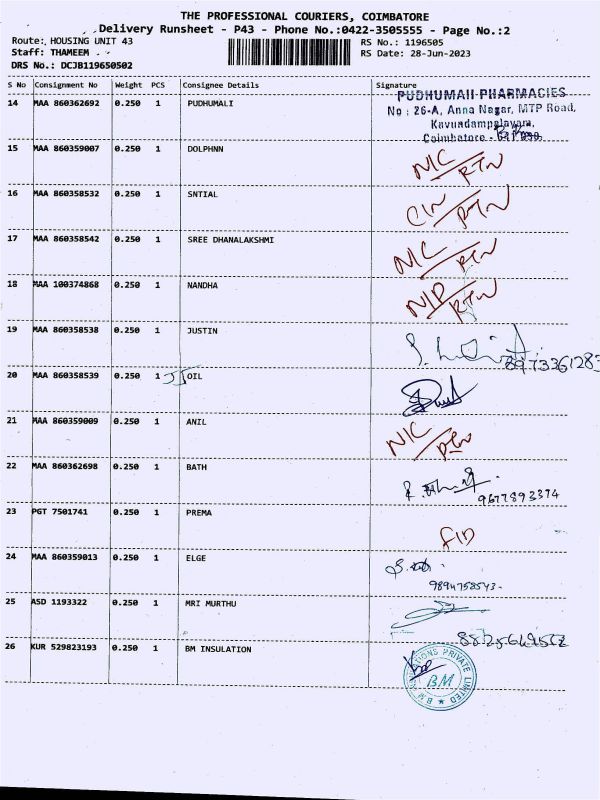 THE PROFESSIONAL COURIERS, COIMBATORE
Delivery Runsheet - P43 - Phone No.:0422-3505555 - Page No.:2
Route: HOUSING UNIT 43 RS No.: 1196505
Staff: THAMEEM RS Date: 28-Jun-2023
DRS No.: DCJB119650502
S No Consignment No Weight PCS Consignee Details Signature
14 MAA 860362692 0.250 1 PUDHUMALI
PUDHUMAII PHARMACIES
No : 26-A, Anna Nagar, MTP Road,
Kavundampalayam,
Coimbatore -
15 MAA 860359007 0.250 1 DOLPHNN N/C RTN
16 MAA 860358532 0.250 1 SNTIAL RTN
17 MAA 860358542 0.250 1 SREE DHANALAKSHMI N/C RTN
18 MAA 100374868 0.250 1 NANDHA N/P RTN
19 MAA 860358538 0.250 1 JUSTIN
8973361283
20 MAA 860358539 0.250 1 OIL
21 MAA 860359009 0.250 1 ANIL N/C
22 MAA 860362698 0.250 1 BATH
9677893374
23 PGT 7501741 0.250 1 PREMA
24 MAA 860359013 0.250 1 ELGE
9894758543
25 ASD 1193322 0.250 1 MRI MURTHU
26 KUR 529823193 0.250 1 BM INSULATION
BM